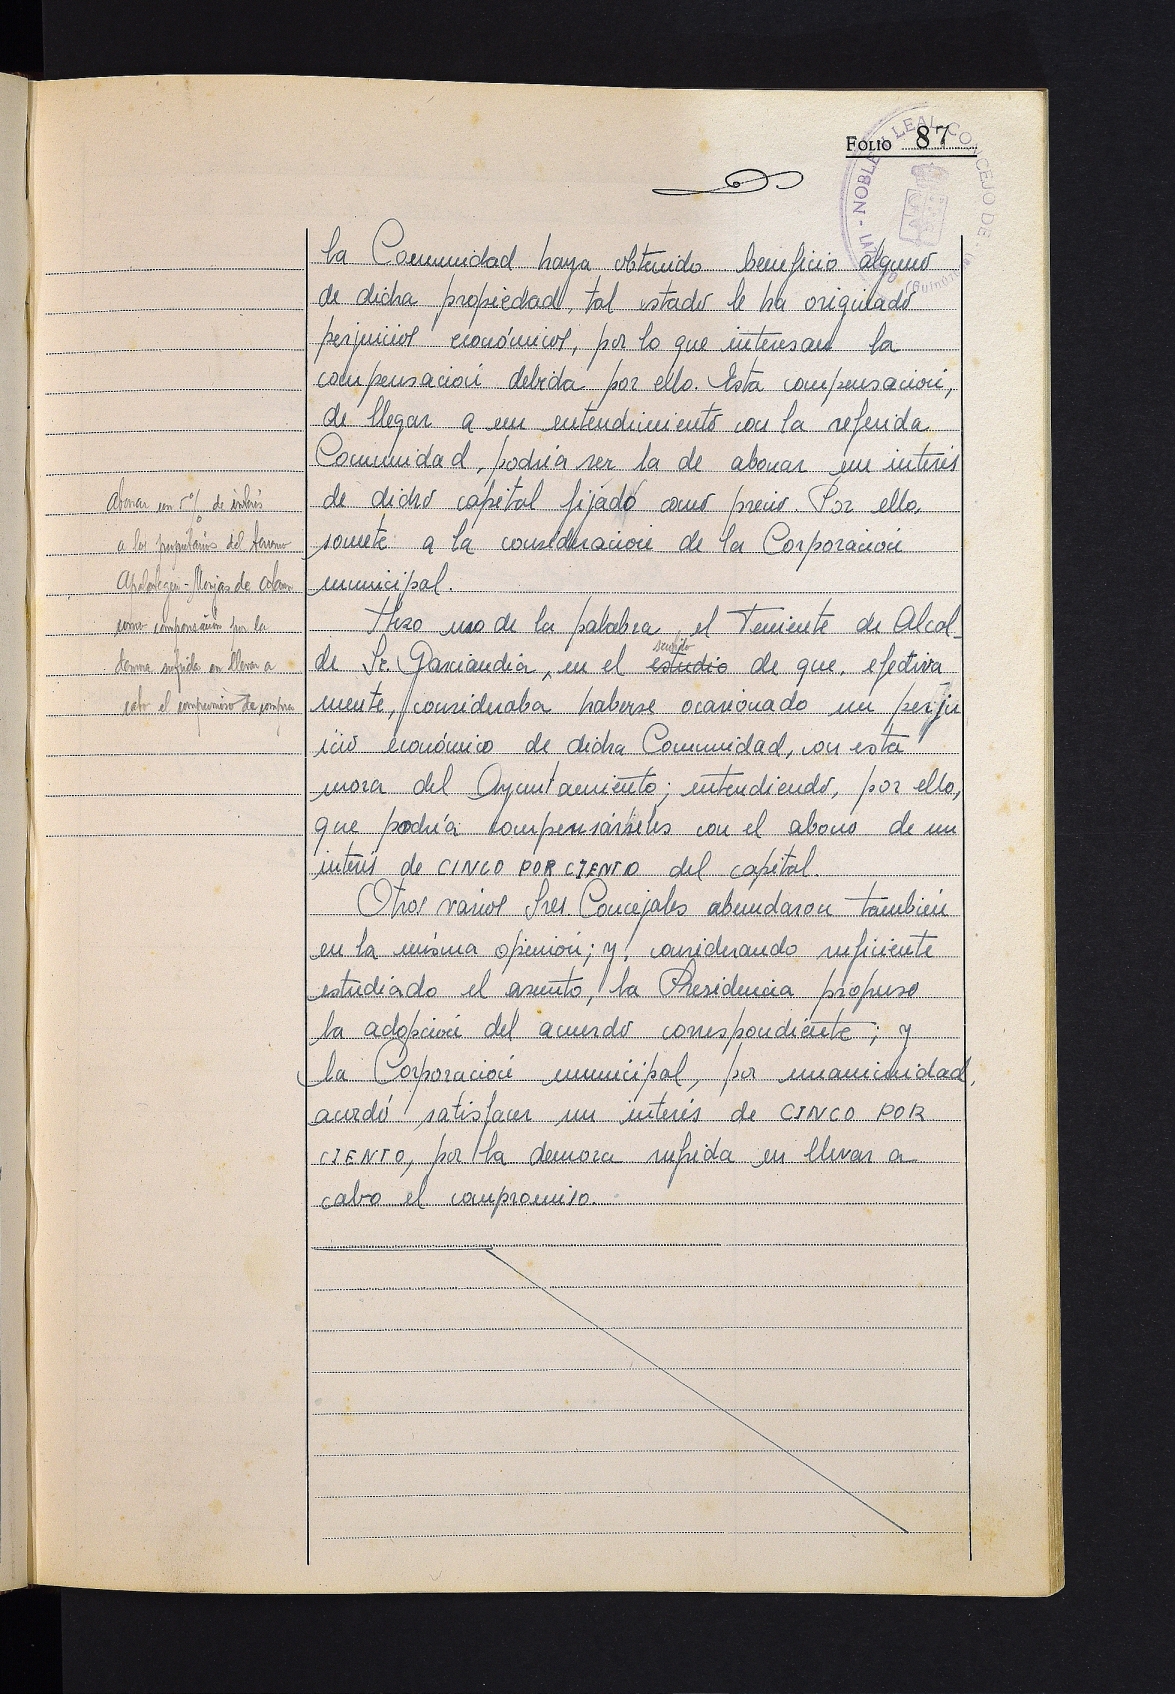 FOLIO 87
NOBLE Y LEAL CONCEJO DE
la Comunidad haya obtenido beneficio alguno
de dicha propiedad, tal estado le ha originado
perjuicios económicos, por lo que interesan la
compensación debida por ello. Esta compensación,
de llegar a un entendimiento con la referida
Comunidad, podría ser la de abonar un interés
de dicho capital fijado como precio. Por ello,
somete a la consideración de la Corporación
municipal.
Hizo uso de la palabra el Teniente de Alcal-
sentido
de Sr. Garciandia, en el estudio de que, efectiva
mente, consideraba haberse ocasionado un perju
icio económico de dicha Comunidad, con esta
mora del Ayuntamiento; entendiendo, por ello,
que podría compensárseles con el abono de un
interés de CINCO POR CIENTO del capital.
Otros varios Sres. Concejales abundaron también
en la misma opinión; y, considerando suficiente
estudiado el asunto, la Presidencia propuso
la adopción del acuerdo correspondiente; y
la Corporación municipal, por unanimidad,
acordó satisfacer un interés de CINCO POR
CIENTO, por la demora sufrida en llevar a
cabo el compromiso.
Abonar un 5% de interés
a los propietarios del terreno
-Monjas de
como compensación por la
demora sufrida en llevar a
cabo el compromiso de compra